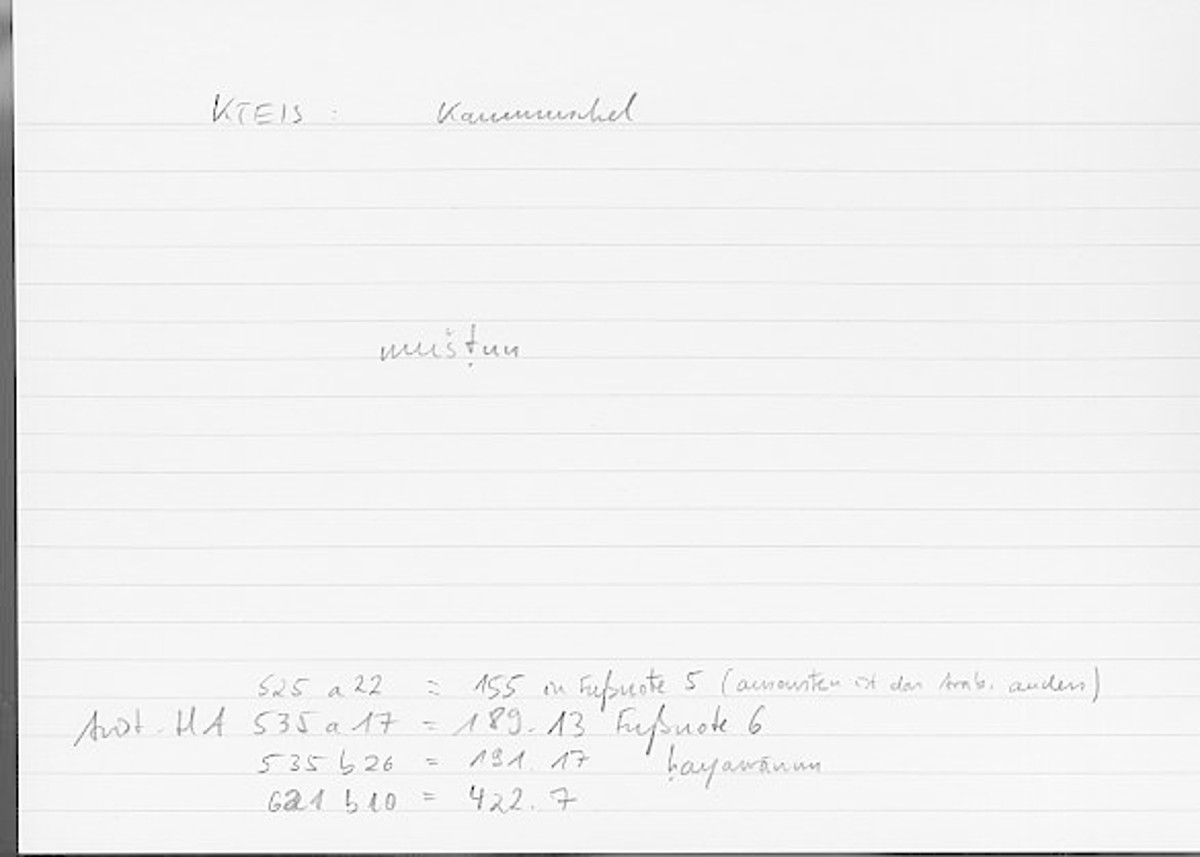 KTEIS : Kammuschel
mušṭun
525 a 22 = 155 in Fußnote 5 (ansonsten ist das Arab. anders)
Arist. HA 535 a 17 = 189.13 Fußnote 6
535 b 26 = 191.17 ḥayawānun
621 b 10 = 422.7